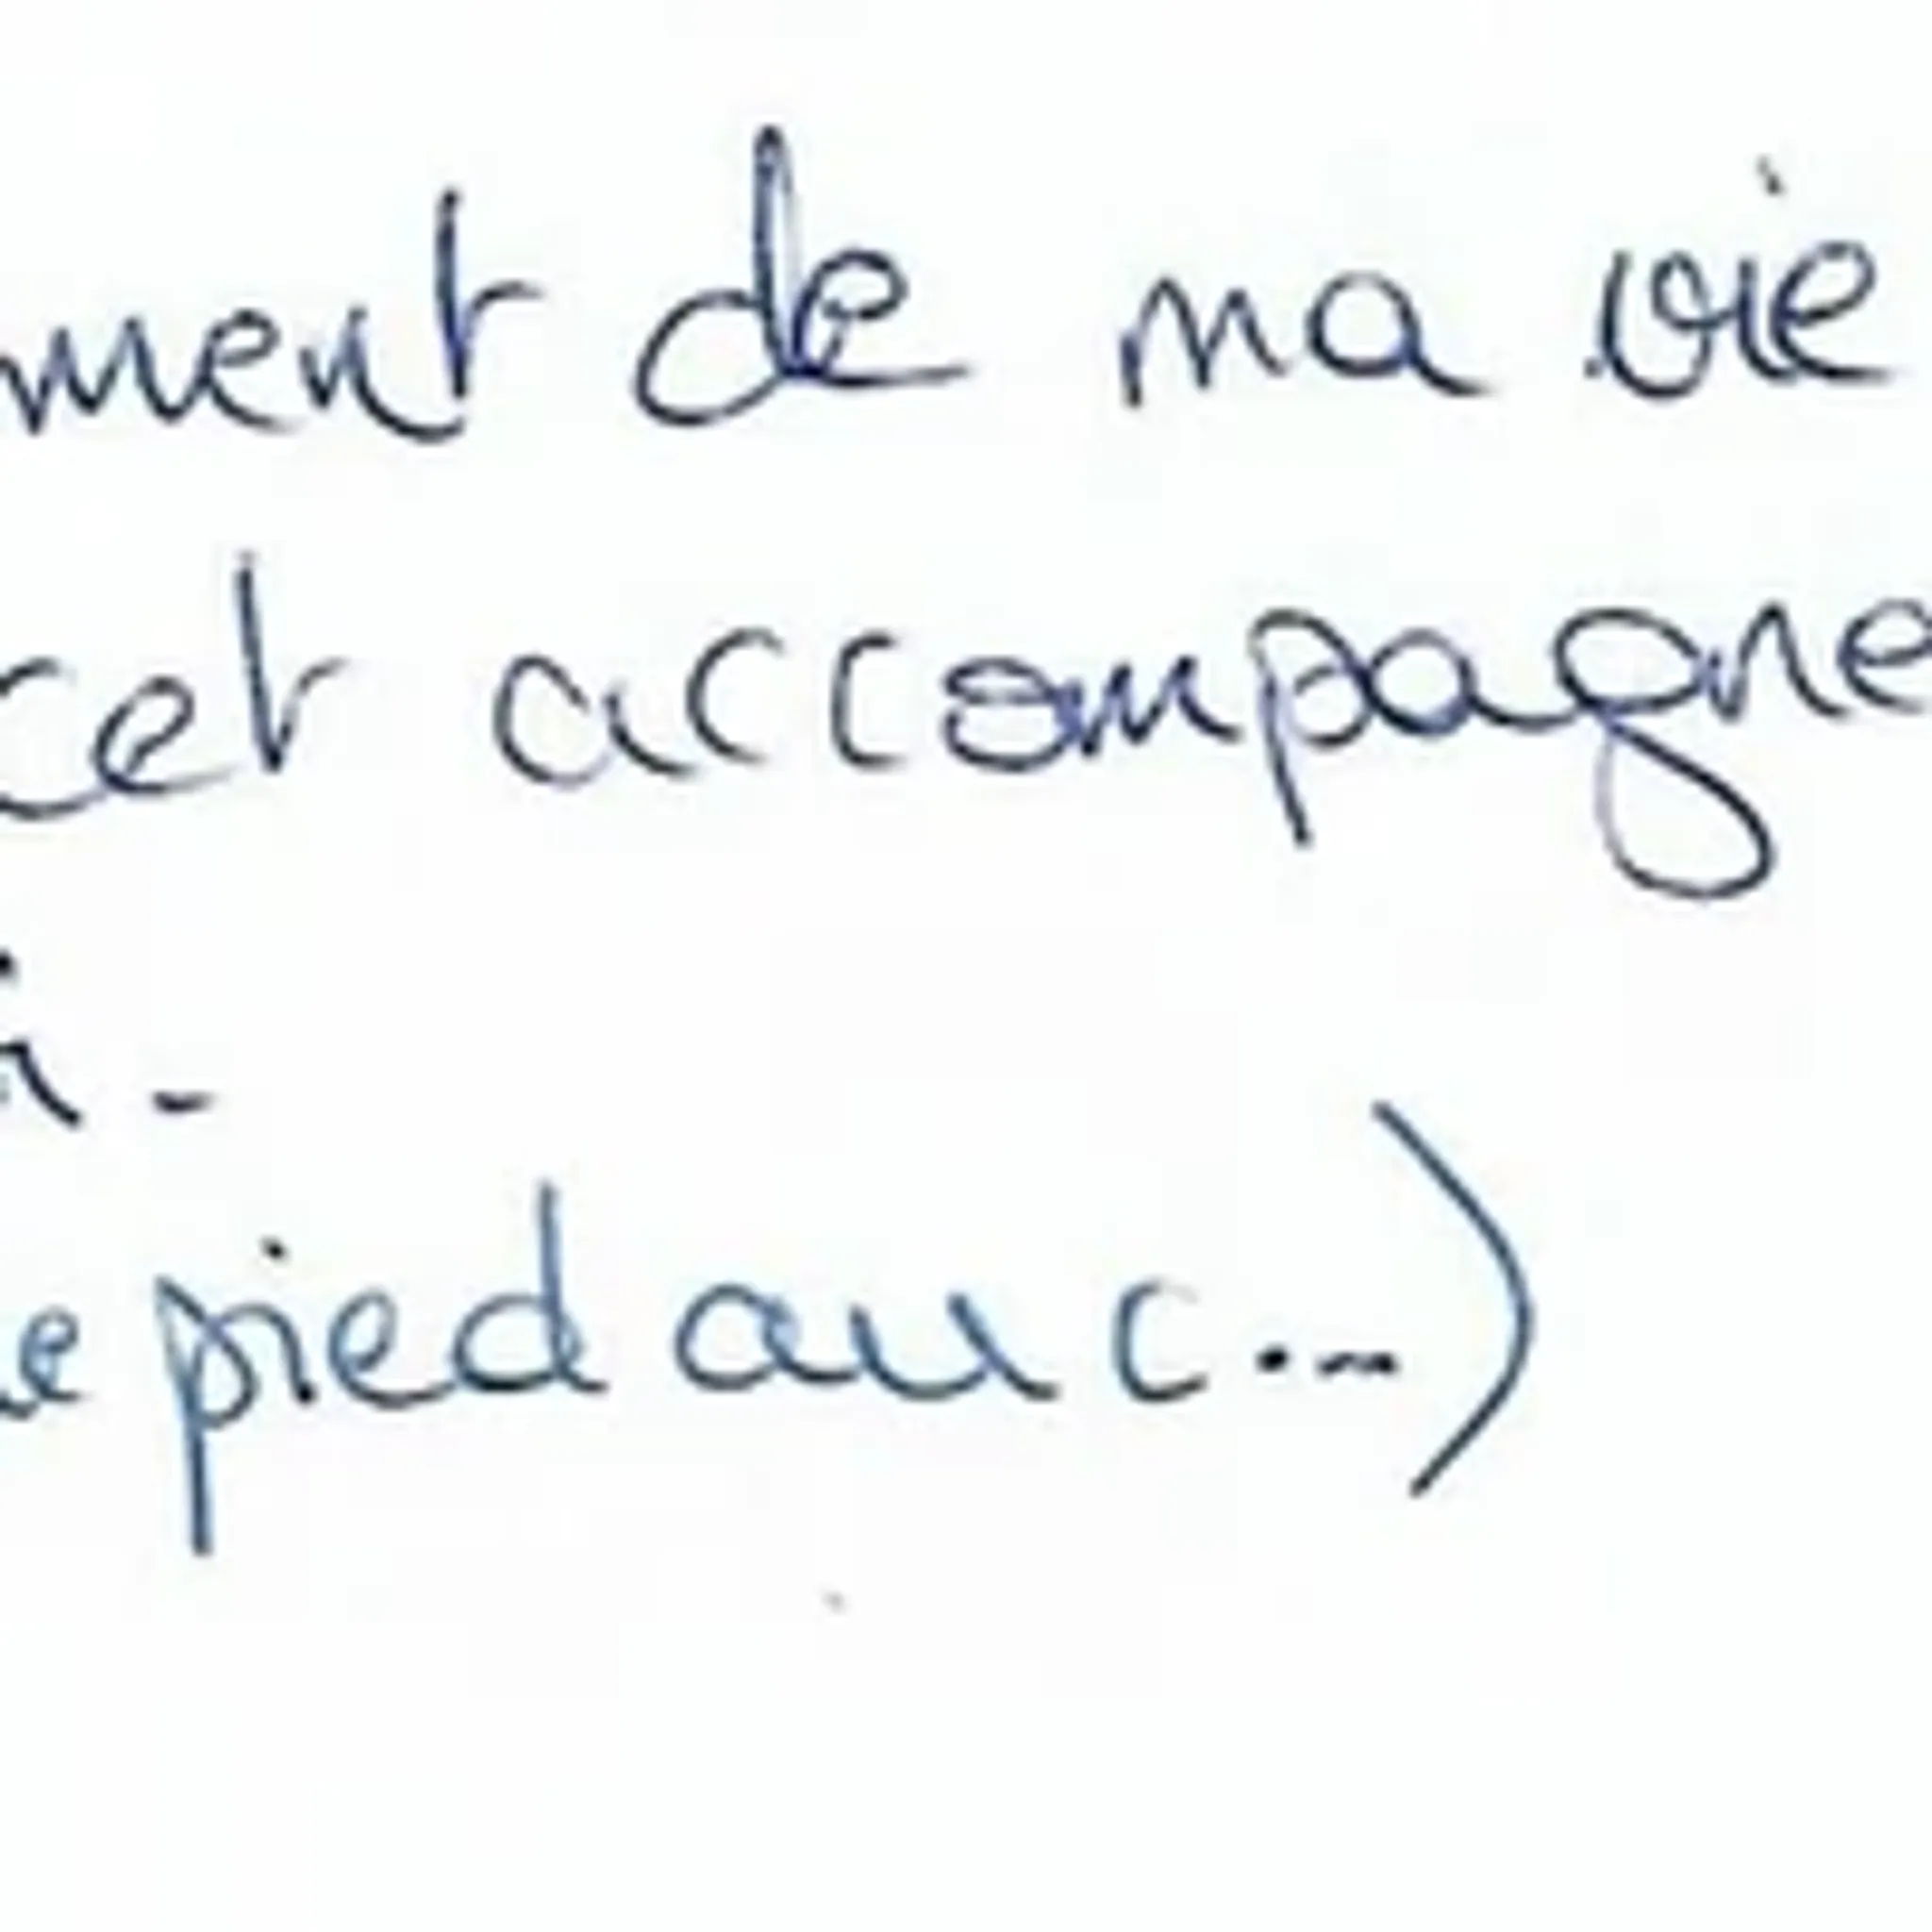 ment de ma vie
cet accompagne
pied au c...)